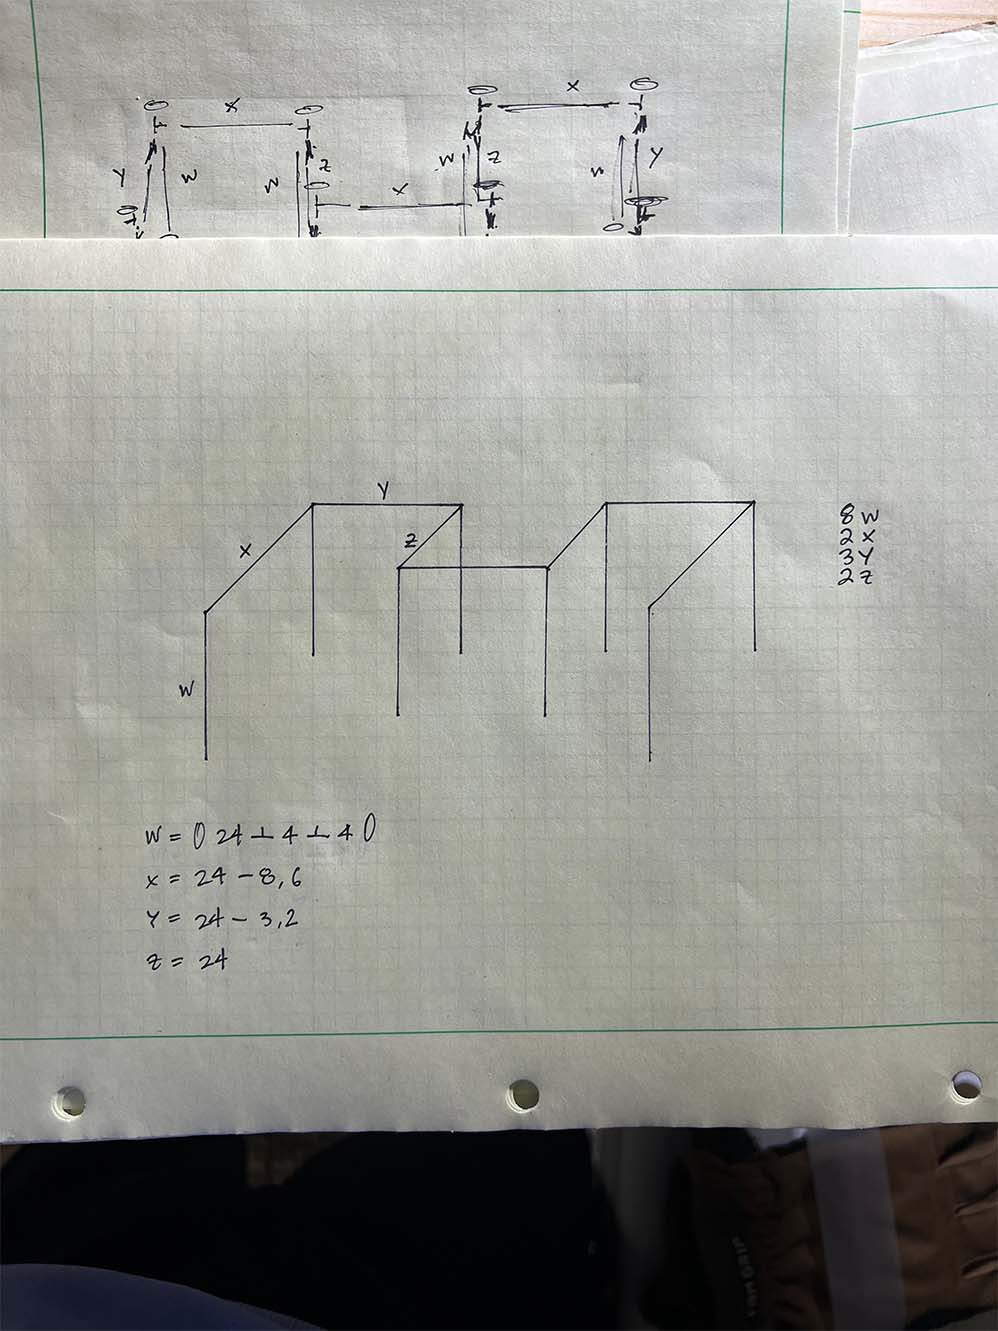 x
x
Y
W
W
z
x
W
z
W
Y
Y
x
z
W
8 W
2 x
3 Y
2 z
W = 0 24 ⊥ 4 ⊥ 4 0
x = 24 - 8,6
Y = 24 - 3,2
z = 24